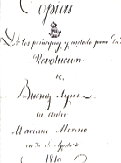 Copias
De los principes y metodo para la
Revolucion
de
Buenos Ayres
su autor
Mariano Moreno
en 30 de Agosto de
1810